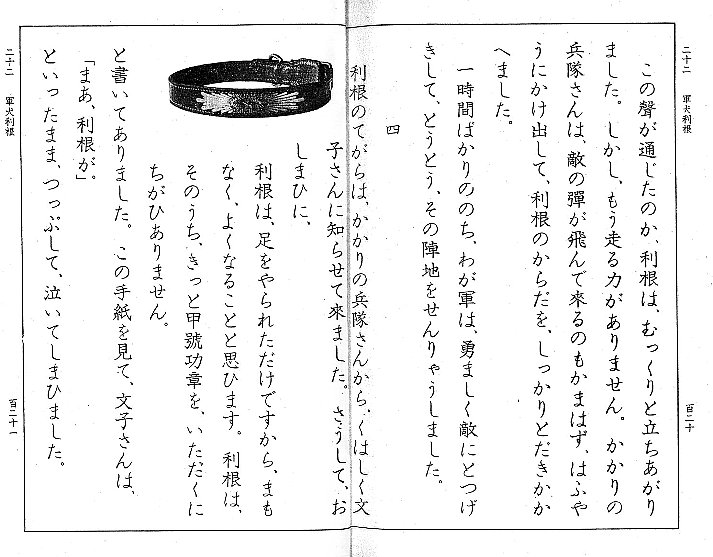 二十二 軍犬利根
百二十
この聲が通じたのか、利根は、むっくりと立ちあがり
ました。しかし、もう走る力がありません。かかりの
兵隊さんは、敵の彈が飛んで來るのもかまはず、はふや
うにかけ出して、利根のからだを、しっかりとだきかか
へました。
一時間ばかりののち、わが軍は、勇ましく敵にとつげ
きして、とうとう、その陣地をせんりゃうしました。
四
利根のてがらは、かかりの兵隊さんから、くはしく文
子さんに知らせて來ました。さうして、お
しまひに、
利根は、足をやられただけですから、まも
なく、よくなることと思ひます。利根は、
そのうち、きっと甲號功章を、いただくに
ちがひありません。
と書いてありました。この手紙を見て、文子さんは、
「まあ、利根が。」
といったまま、つっぷして、泣いてしまひました。
二十二 軍犬利根
百二十一